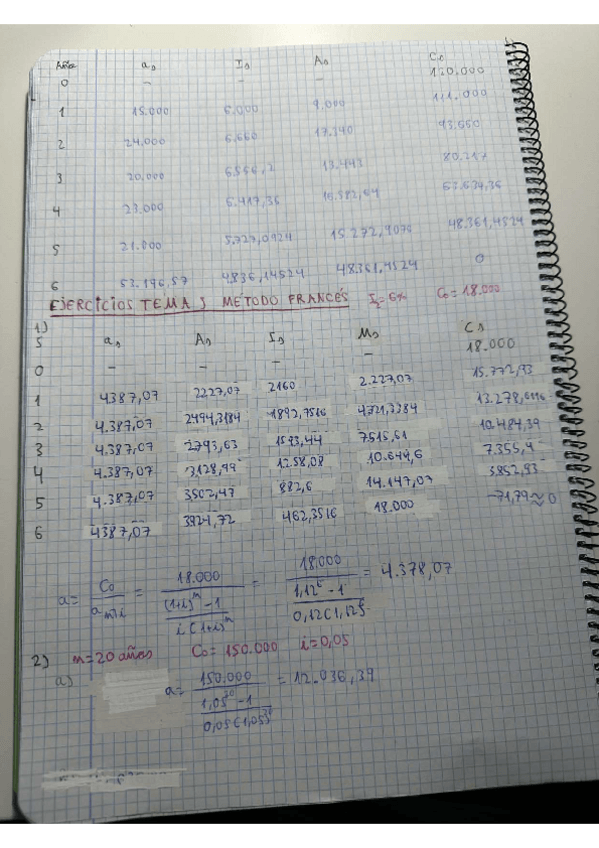 Año as Is As Cs
0 - - - 120.000
1 15.000 6.000 9.000 111.000
2 24.000 6.660 17.340 93.660
3 20.000 6556,2 13.443 80.217
4 23.000 6.417,36 16.582,64 63.634,36
5 21.000 5.727,0924 15.272,9076 48.361,4524
6 53.196,57 4836,14524 48.361,4524 0
EJERCICIOS TEMA 5 MÉTODO FRANCÉS I= 6% C0 = 18.000
1)
S as As Is Ms Cs
0 - - - - 18.000
1 4387,07 2227,07 2160 2.227,07 15.772,93
2 4.387,07 2494,3184 1892,7516 4721,3384 13.278,6116
3 4.387,07 2793,63 1593,44 7515,61 10.484,39
4 4.387,07 3128,99 1258,08 10.644,6 7.355,4
5 4.387,07 3502,47 882,6 14.147,07 3852,93
6 4387,07 3924,72 462,3516 18.000 -71,79≈0
a= C0 / a n¬i = 18.000 / ((1+i)^n -1 / i(1+i)^n) = 18.000 / (1,12^6 -1 / 0,12(1,12)^6) = 4.378,07
2) n=20 años C0= 150.000 i=0,05
a) a= 150.000 / (1,05^20 -1 / 0,05(1,05)^20) = 12.036,39